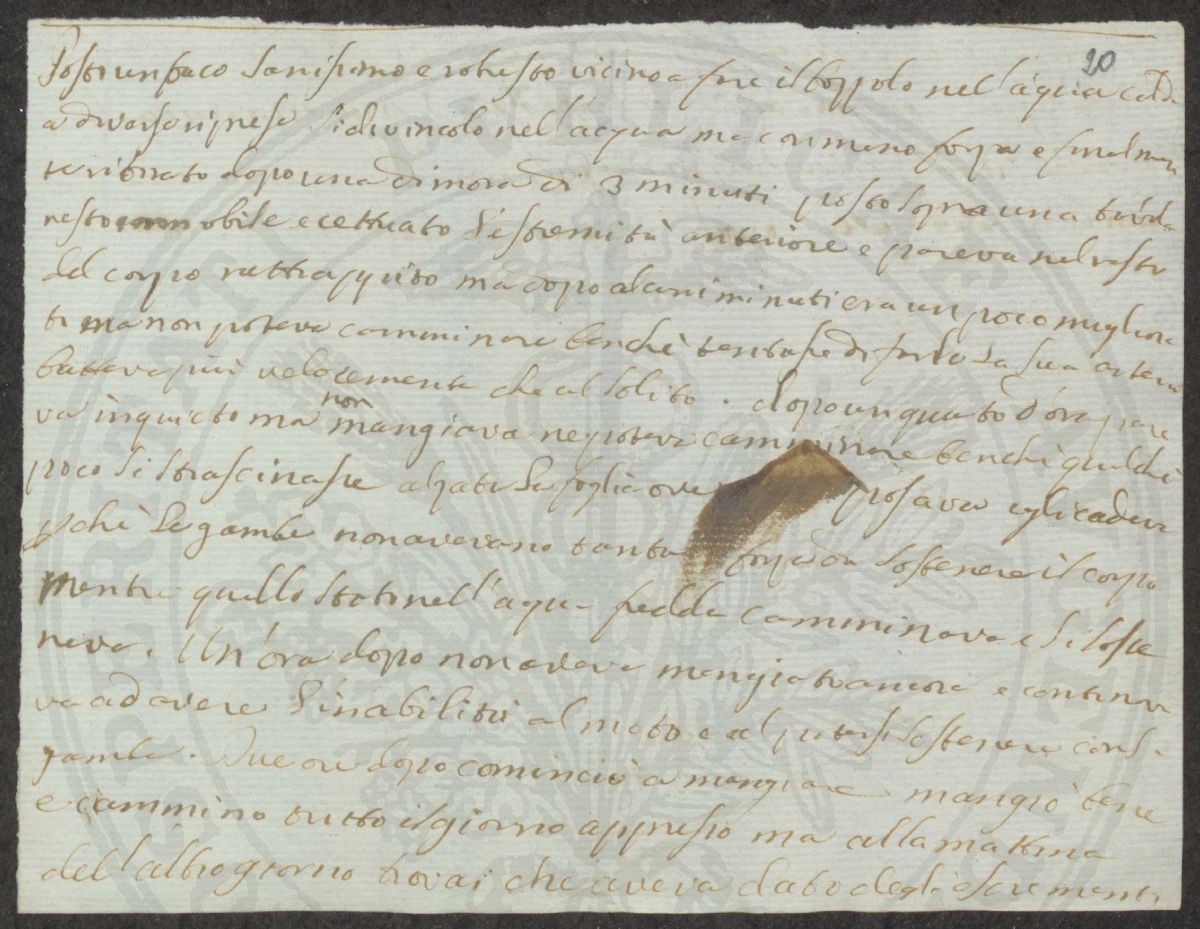 20
Posto un baco sanissimo e robusto vicino a fare il bozzolo nell'acqua calda
a diverse riprese si divincolo nell'acqua ma con meno forza e finalmen
te ritirato dopo una dimora di 3 minuti posto sopra una tavola
resto immobile eccettuato l'estremità anteriore e pareva nel resto
del corpo rattrappito ma dopo alcuni minuti era un poco migliora
to ma non poteva camminare benchè tentasse di farlo la sua arteria
batteva più velocemente che al solito. dopo un quarto d'ora pare
va inquieto ma non mangiava ne poteva camminare benchè qualchè
poco si strascinasse alzata la foglia ove posava egli cadeva
pchè le gambe non avevano tanta forza da sostenere il corpo
mentre quello stato nell'aqua fredda camminava e si soste
neva. Un'ora dopo non aveva mangiato ancora e continua
va ad avere l'inabilità al moto e al potersi sostenere
gambe. Due ore dopo cominciò a mangiare mangiò bene
e cammino tutto il giorno appresso ma alla mattina
dell'altro giorno trovai che aveva dato degli escrementi
VERITATI